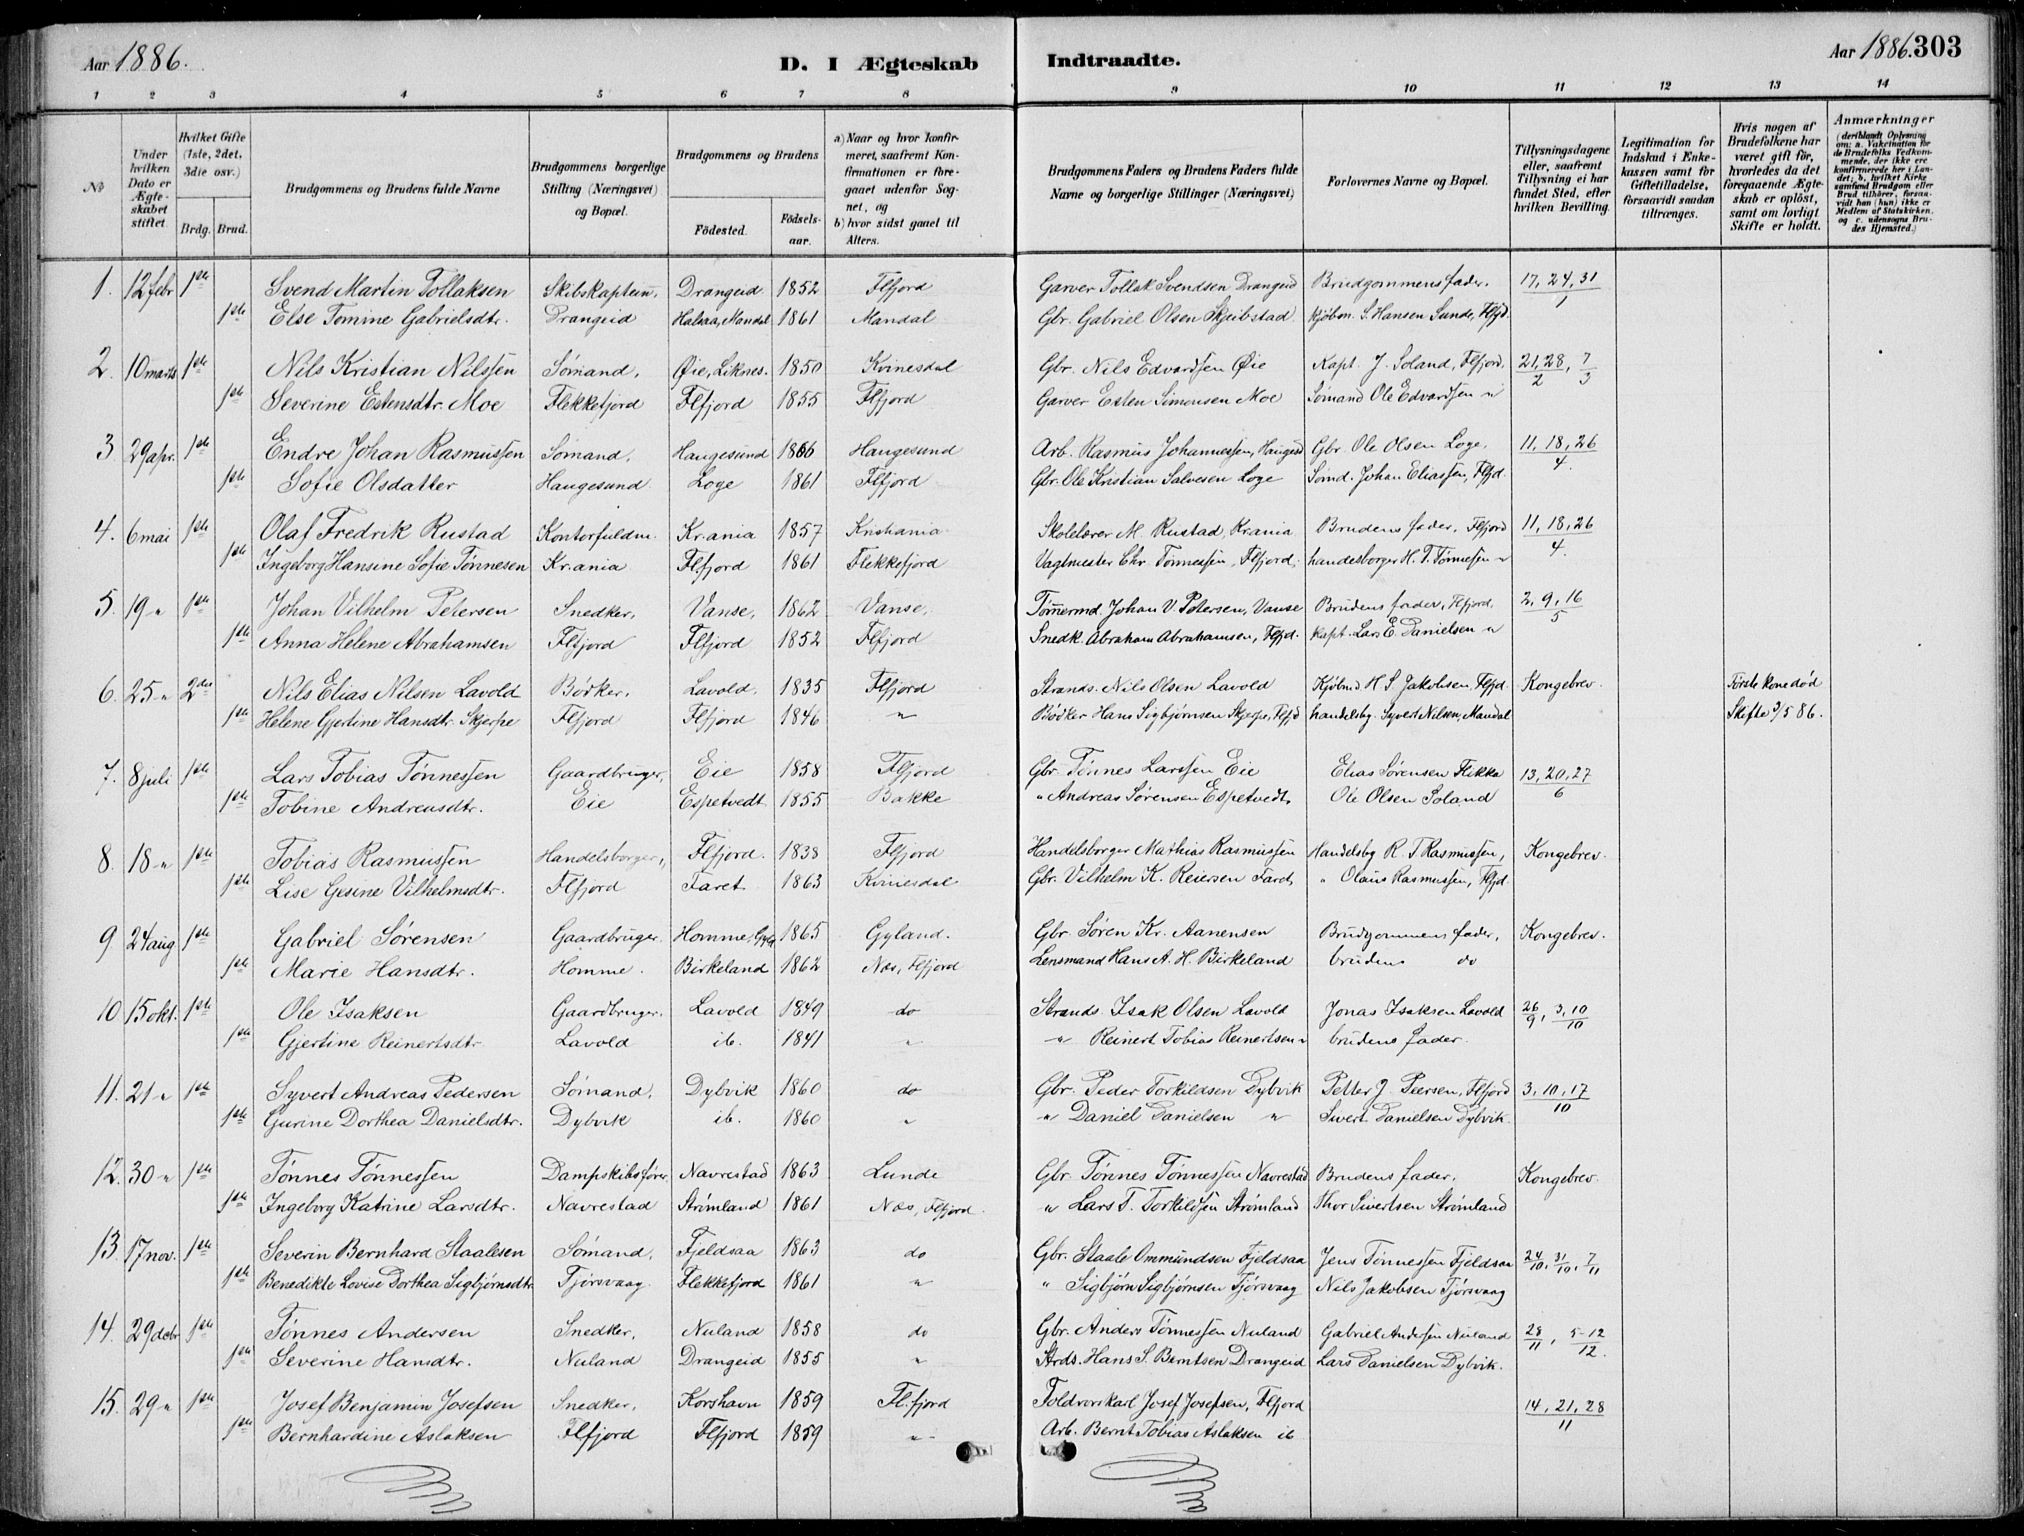 Aar 1886.
D. I Ægteskab Indtraadte.
Aar 1886. 303
1 2 3 4 5 6 7 8 9 10 11 12 13 14
No
Under hvilken Dato er Ægteskabet stiftet.
Hvilket Gifte (1ste, 2det, 3die osv.)
Brdg. Brud.
Brudgommens og Brudens fulde Navne
Brudgommens borgerlige Stilling (Næringsvei) og Bopæl.
Brudgommens og Brudens
Födested. Födsels-aar.
a) Naar og hvor konfirmeret, saafremt Konfirmationen er foregaaet udenfor Sognet, og
b) hvor sidst gaaet til Alters.
Brudgommens Faders og Brudens Faders fulde Navne og borgerlige Stillinger (Næringsvei)
Forlovernes Navne og Bopæl.
Tillysningsdagene eller, saafremt Tillysning ei har fundet Sted, efter hvilken Bevilling.
Legitimation for Indskud i Enkekassen samt for Giftetilladelse, forsaavidt saadan tiltrænges.
Hvis nogen af Brudefolkene har været gift för, hvorledes da det foregaaende Ægteskab er oplöst, samt om lovligt Skifte er holdt.
Anmærkninger
(deriblandt Oplysning om: a. Vakcination for de Brudefolks Vedkommende, der ikke ere konfirmerede her i Landet; b. hvilket Kirkesamfund Brudgom eller Brud tilhörer, forsaavidt han (hun) ikke er Medlem af Statskirken, og c. udensogns Brudes Hjemsted.)
1. 12 febr 1ste Svend Martin Tollaksen Skibskaptein, Drangeid 1852 Flfjord Garver Tollak Svendsen Drangeid Brudgommens fader. 17, 24, 31/1
1ste Else Tomine Gabrielsdtr. Drangeid Halsaa, Mandal 1861 Mandal Gbr. Gabriel Olsen Skjeibstad Kjöbm. S. Hansen Sunde, Flfjd.
2. 10 marts 1ste Nils Kristian Nilssen Sömand, Øie, Liknes. 1850 Kvinesdal Gbr. Nils Edvardsen Øie Kapt. J. Soland, Flfjord, 21, 28/2, 7/3
1ste Severine Estensdtr. Moe Flekkefjord Flfjord 1855 Flfjord Garver Esten Simonsen Moe Sömand Ole Edvardsen "
3 29 apr. 1ste Endre Johan Rasmussen Sömand, Haugesund 1866 Haugesund Arb. Rasmus Johannessen, Haugesd Gbr. Ole Olsen Loge, 11, 18, 26/4.
1ste Sofie Olsdatter Haugesund Loge 1861 Flfjord Gbr. Ole Kristian Salvesen Loge Sömd. Johan Eliassen, Flfjd.
4. 6 mai 1ste Olaf Fredrik Rustad Kontorfuldm. Kr.ania 1857 Kristiania Skolelærer M. Rustad, Kr.ania Brudens fader, Flfjord 11, 18, 26/4.
1ste Ingeborg Hansine Sofie Tönnesen Kr.ania Flfjord 1861 Flekkefjord Vagtmester Chr. Tönnessen, Flfjord, handelsborger H. T. Tönnesen "
5. 19 " 1ste Johan Vilhelm Petersen Snedker, Vanse, 1862 Vanse, Tömmermd. Johan V. Petersen, Vanse Brudens fader, Flfjord, 2, 9, 16/5
1ste Anna Helene Abrahamsen Flfjord Flfjord 1852 Flfjord Snedk. Abraham Abrahamsen, Flfjd. Kapt. Lars E. Danielsen "
6. 25 " 2det Nils Elias Nilsen Lavold Bödker, Lavold, 1835 Flfjord Strands. Nils Olsen Lavold Kjöbmd. H. S. Jakobsen, Flfjd. Kongebrev. Förste kone död
1ste Helene Gjertine Hansdtr. Skjerpe Flfjord Flfjord 1846 " Bödker Hans Sigbjörnsen Skjerpe, Flfjd handelsbg. Syvert Nilsen, Mandal Skifte /5 86.
7. 8 juli 1ste Lars Tobias Tönnessen Gaardbruger, Eie 1858 Flfjord Gbr. Tönnes Larssen Eie Elias Sörensen Flikka 13, 20, 27/6
1ste Tobine Andreasdtr. Eie Espetvedt 1855 Bakke " Andreas Sörensen Espetvedt, Ole Olsen Soland
8. 18 " 1ste Tobias Rasmussen Handelsborger, Flfjord. 1838 Flfjord Handelsborger Mathias Rasmussen Handelsbg R. T. Rasmussen, Kongebrev.
1ste Lise Gesine Vilhelmsdtr. Flfjord Faret 1863 Kvinesdal Gbr. Vilhelm K. Reiersen Faret, " Olaus Rasmussen, Flfjd.
9 24 aug 1ste Gabriel Sörensen Gaardbruger, Homme, Gyld 1865 Gyland. Gbr. Sören Kr. Aanensen Brudgommens fader, Kongebrev.
1ste Marie Hansdtr. Homme. Birkeland 1862 Nes, Flfjord Lensmand Hans A. H. Birkeland brudens do
10 15 okt. 1ste Ole Isaksen Gaardbruger. Lavold 1849 do Strands. Isak Olsen Lavold Jonas Isaksen Lavold 26/9, 3, 10/10
1ste Gjertine Reinertsdtr. Lavold ib. 1841 " " Reinert Tobias Reinertsen " brudens fader.
11. 21 " 1ste Syvert Andreas Pedersen Sömand, Dybvik 1860 do Gbr. Peder Torkildsen Dybvik Petter J. Peersen, Flfjord 3, 10, 17/10
1ste Gurine Dorthea Danielsdtr. Dybvik ib. 1860 " " Daniel Danielsen " Sivert Danielsen Dybvik.
12. 30 " 1ste Tönnes Tönnessen Dampskibsförer, Navrestad 1863 Lunde Gbr. Tönnes Tönnessen Navrestad Brudens fader. Kongebrev.
1ste Ingeborg Katrine Larsdtr. Navrestad Strömland 1861 Nes, Flfjord. " Lars T. Torkildsen Strömland Thor Sivertsen Strömland
13 17 nov. 1ste Severin Bernhard Staalesen Sömand, Fjeldsaa 1863 do Gbr. Staale Ommundsen Fjeldsaa Jens Tönnessen Fjeldsaa 24/10, 31/10, 7/11
1ste Benedikte Lovise Dorthea Sigbjörnsdtr Tjörsvaag. Flekkefjord 1861 " " Sigbjörn Sigbjörnsen Tjörsvaag Nils Jakobsen Tjörsvaag
14. 29 decbr 1ste Tönnes Andersen Snedker, Nuland 1858 do Gbr. Anders Tönnessen Nuland Gabriel Andersen Nuland 28/11, 5-12/12.
1ste Severine Hansdtr. Nuland Drangeid 1855 " Strds. Hans S. Berntsen Drangeid Lars Danielsen Dybvik.
15. 29 " 1ste Josef Benjamin Josefsen Snedker, Korshavn 1859 Fl.fjord Toldrorskarl Josef Josefsen, Flfjord 14, 21, 28/11
1ste Bernhardine Aslaksen Flfjord Flfjord 1859 " Arb. Bernt Tobias Aslaksen ib